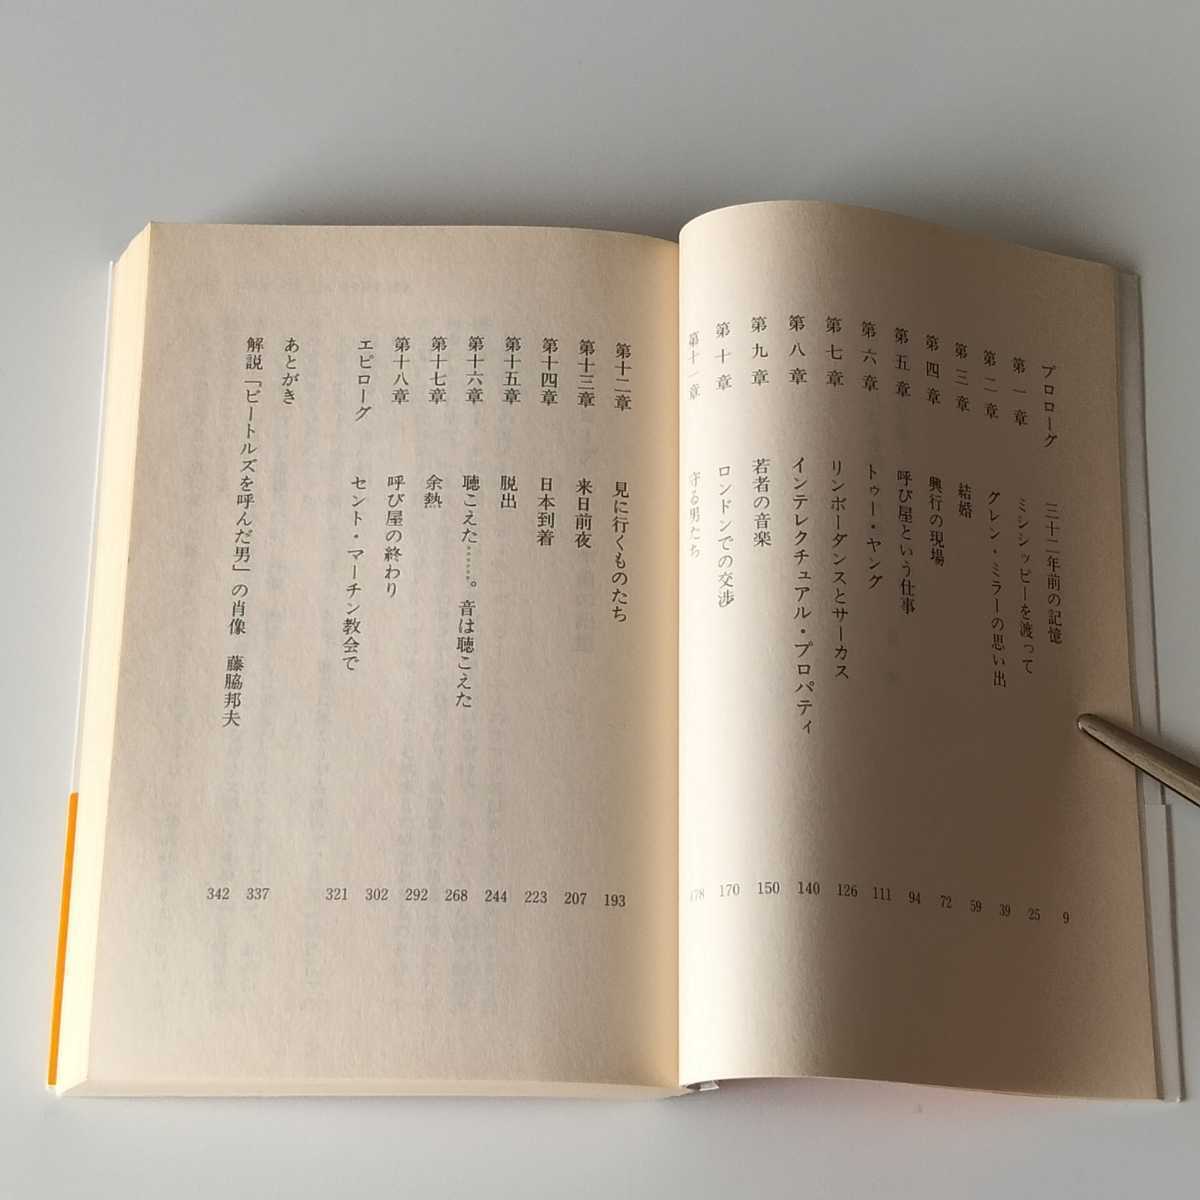 プロローグ 三十二年前の記憶 9
第一章 ミシシッピーを渡って 25
第二章 グレン・ミラーの思い出 39
第三章 結婚 59
第四章 興行の現場 72
第五章 呼び屋という仕事 94
第六章 トゥー・ヤング 111
第七章 リンボーダンスとサーカス 126
第八章 インテレクチュアル・プロパティ 140
第九章 若者の音楽 150
第十章 ロンドンでの交渉 170
第十一章 守る男たち 178
第十二章 見に行くものたち 193
第十三章 来日前夜 207
第十四章 日本到着 223
第十五章 脱出 244
第十六章 聴こえた……。音は聴こえた 268
第十七章 余熱 292
第十八章 呼び屋の終わり 302
エピローグ セント・マーチン教会で 321
あとがき 337
解説「ビートルズを呼んだ男」の肖像 藤脇邦夫 342